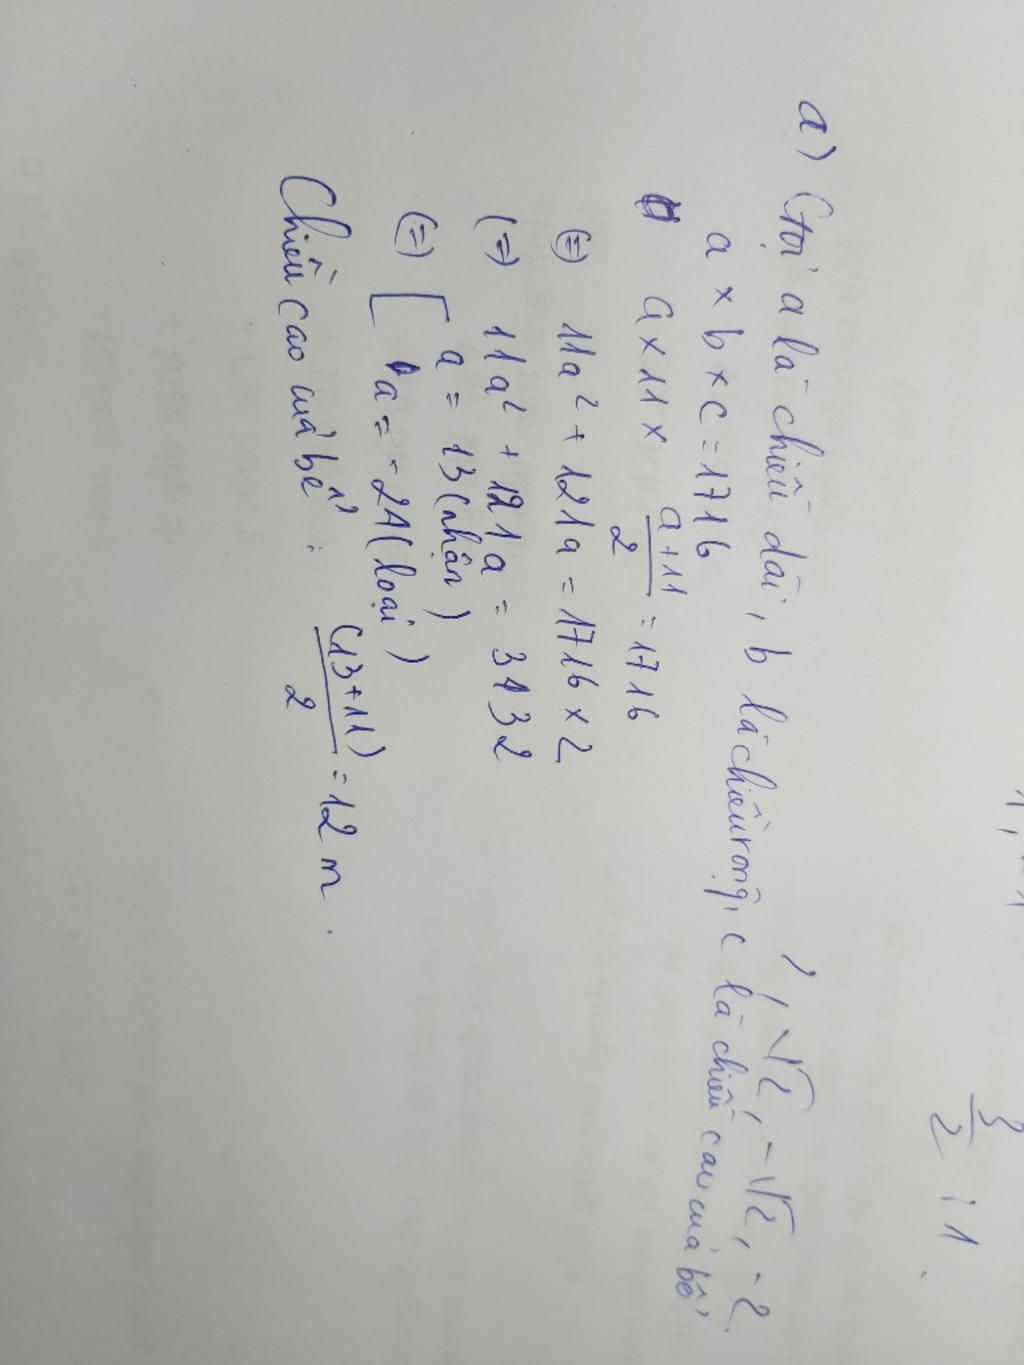 3/2 ; 1
, √2, -√2, -2.
a) Gọi a là chiều dài, b là chiều rộng, c là chiều cao của bể
a × b × c = 1716
a × 11 × (a+11)/2 = 1716
(=) 11a² + 121a = 1716 × 2
(=) 11a² + 121a = 3432
(=) [ a = 13 (nhận)
a = -24 (loại)
Chiều cao của bể : (13+11)/2 = 12 m.